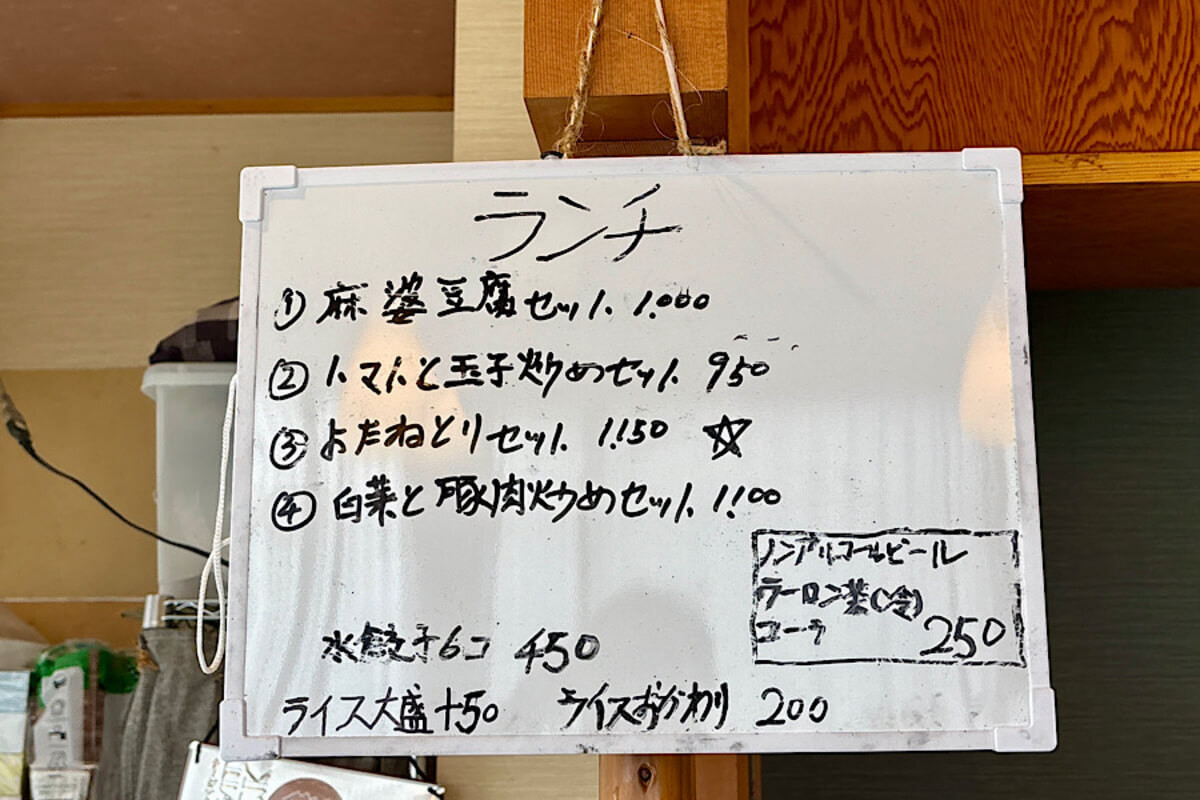 ランチ
① 麻婆豆腐セット 1.000
② トマトと玉子炒めセット 950
③ よだれとりセット 1.150 ☆
④ 白菜と豚肉炒めセット 1.100
ノンアルコールビール
ウーロン茶(冷)
コーラ 250
水餃子6コ 450
ライス大盛+50 ライスおかわり 200